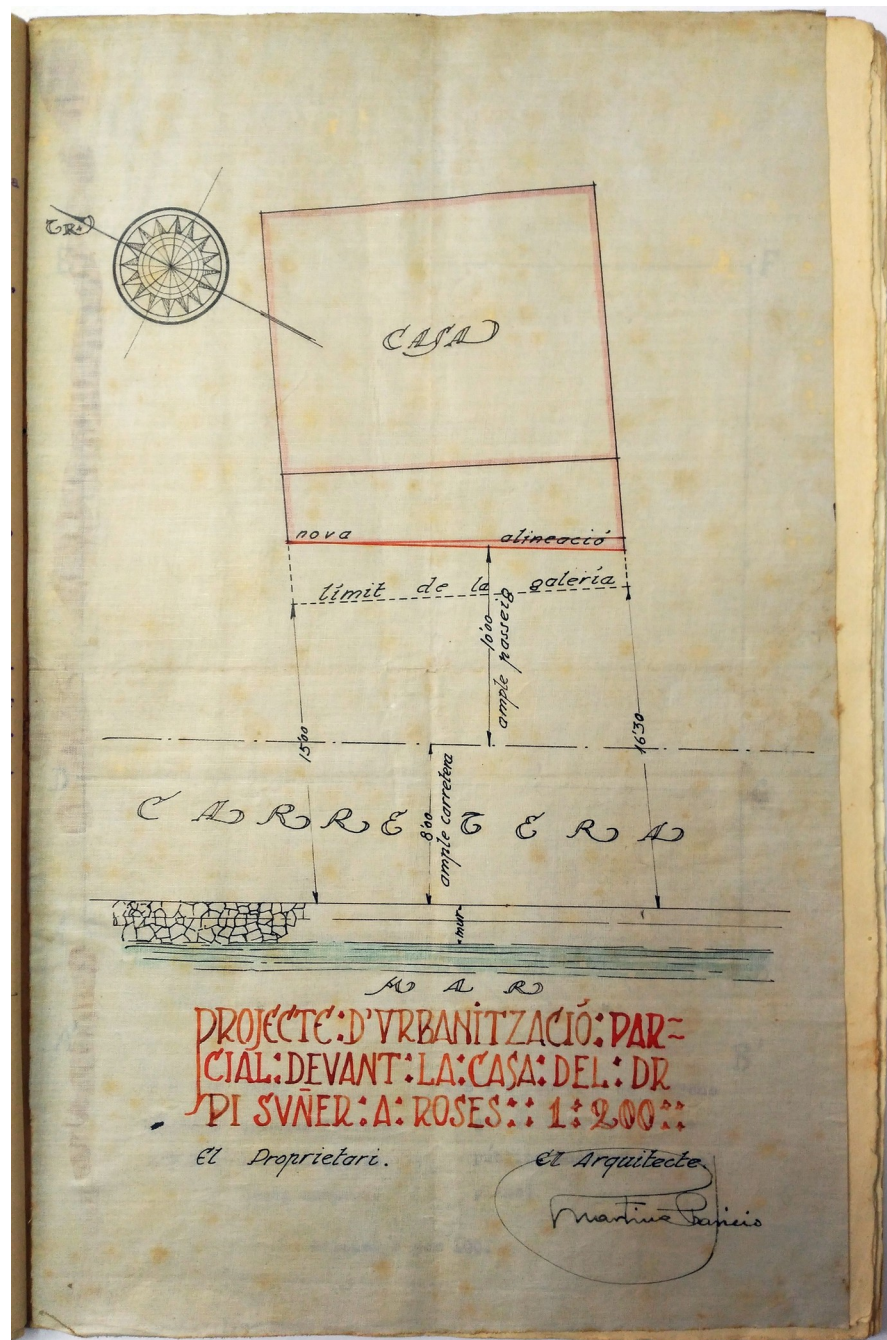 TR
CASA
nova alineació
límit de la galería
10'00
ample passeig
15'00
16'30
CARRETERA
8'00
ample carretera
mur
MAR
PROJECTE:D'VRBANITZACIÓ:PAR=
CIAL:DEVANT:LA:CASA:DEL:DR
PI SVÑER:A:ROSES:: 1:200::
El Proprietari.
El Arquitecte.